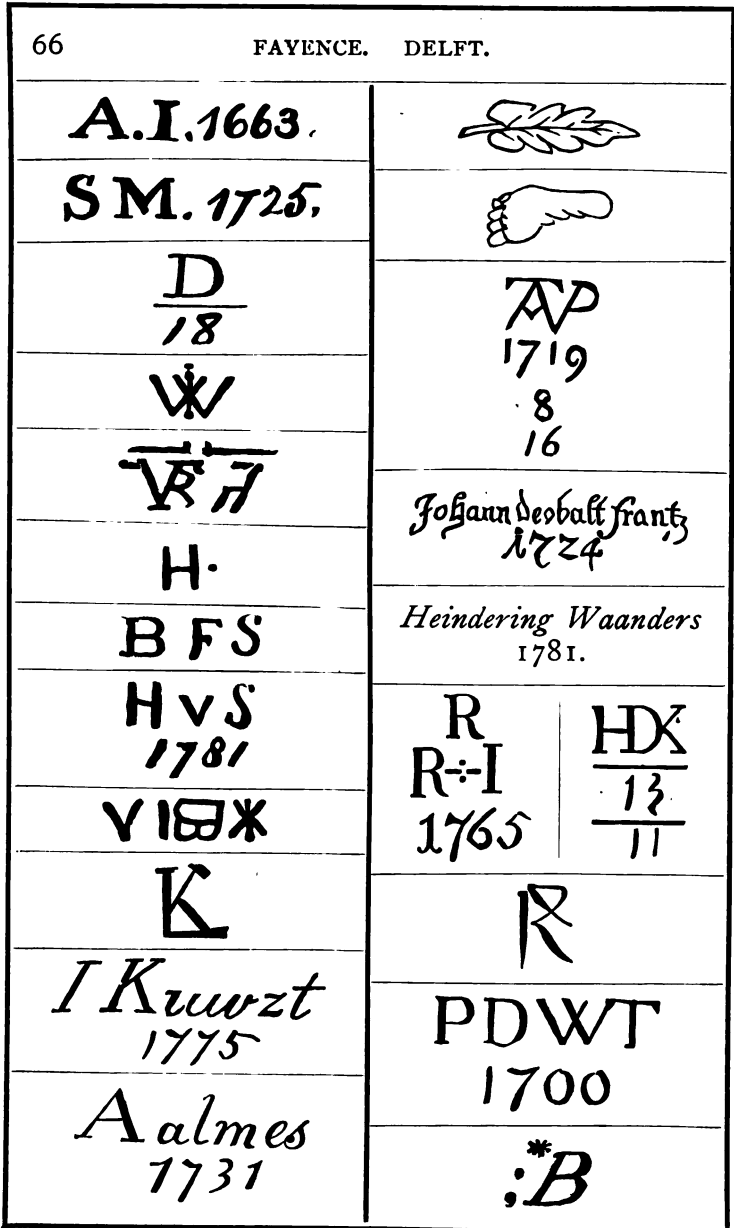 66 FAYENCE. DELFT.
A.I.1663.
S M. 1725.
D
18
H.
B F S
H v S
1781
K
1775
Aalmes
1731
1719
8
16
Johann frantz
1724
Heindering Waanders
1781.
R
R÷I
1765
HDK
13
11
R
PDWT
1700
*
;B